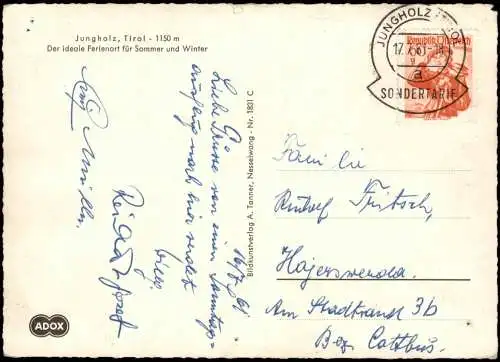 Jungholz, Tirol - 1150 m
Der ideale Ferienort für Sommer und Winter
JUNGHOLZ TIROL
17.
a
SONDERTARIF
Republik Österreich
16.7.61
Liebe Grüße von einem Sonntags-
ausflug nach hier sendet
Bildkunstverlag A. Tanner, Nesselwang - Nr. 1831 C
Familie
Rudolf Fritsch,
Hojerswerda.
Am Stadtrand 3b
Bez. Cottbus.
ADOX